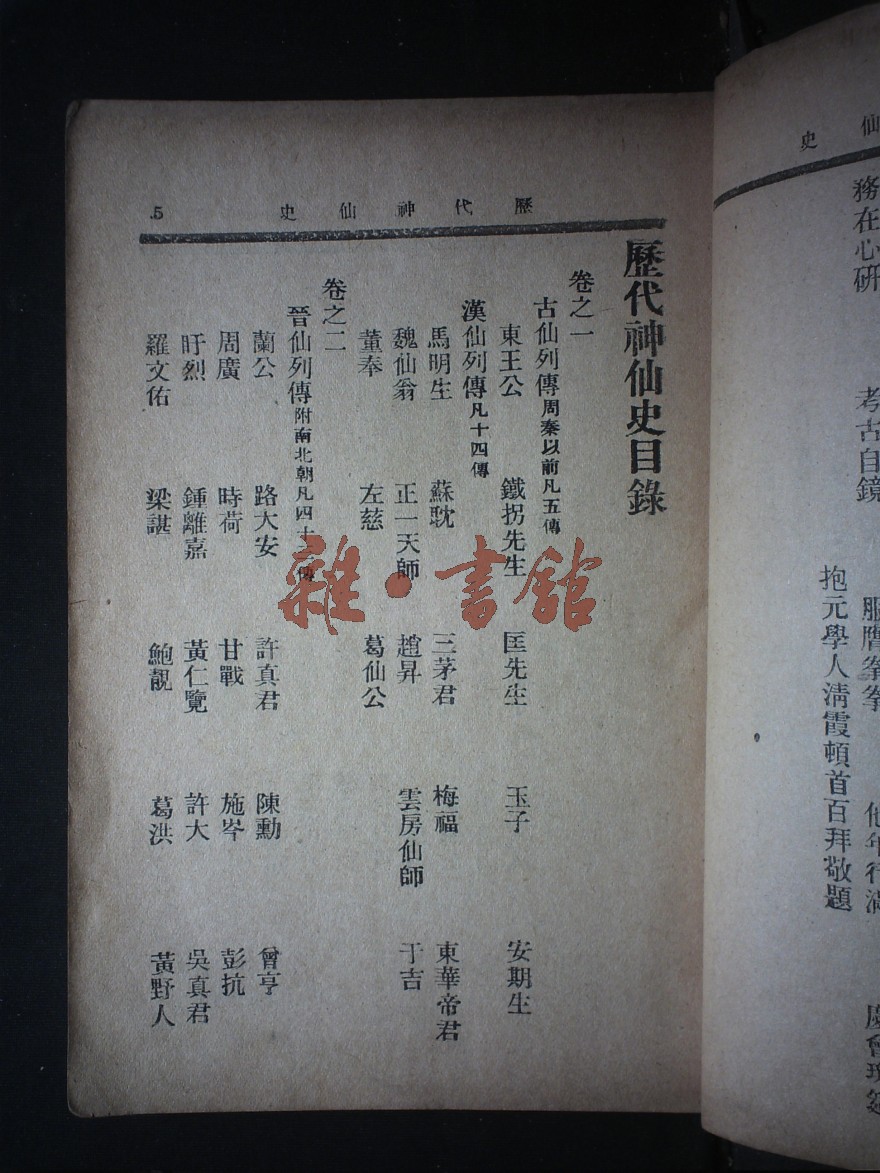 仙史
務在心研 考古自鏡 服膺拳拳 他年行滿
抱元學人清霞頓首百拜敬題
歷代神仙史 .5
歷代神仙史目錄
卷之一
古仙列傳周秦以前凡五傳
東王公 鐵拐先生 匡先生 玉子 安期生
漢仙列傳凡十四傳
馬明生 蘇耽 三茅君 梅福 東華帝君
魏仙翁 正一天師 趙昇 雲房仙師 于吉
董奉 左慈 葛仙公
卷之二
晉仙列傳附南北朝凡四十傳
蘭公 路大安 許真君 陳勳 曾亨
周廣 時荷 甘戰 施岑 彭抗
盱烈 鍾離嘉 黃仁覽 許大 吳真君
羅文佑 梁諶 鮑靚 葛洪 黃野人
雜·書館